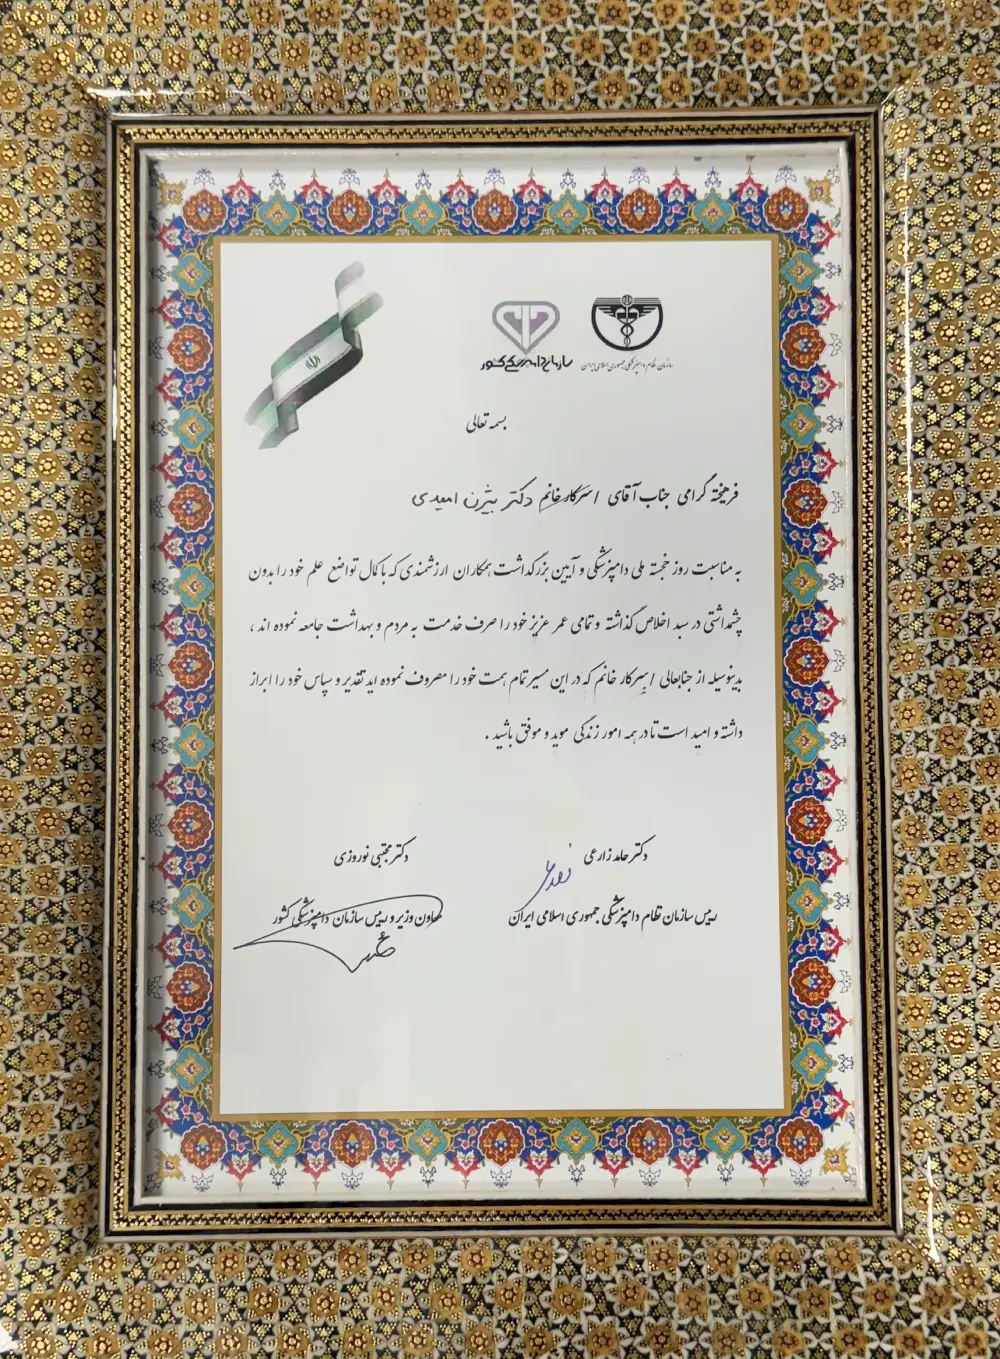 سازمان نظام دامپزشکی جمهوری اسلامی ایران
سازمان دامپزشکی کشور
بسمه تعالی
فرهیخته گرامی جناب آقای / سرکار خانم دکتر بیژن امیدی
به مناسبت روز خجسته ملی دامپزشکی و آیین بزرگداشت همکاران ارزشمندی که با کمال تواضع علم خود را بدون
چشمداشتی در سبد اخلاص گذاشته و تمامی عمر عزیز خود را صرف خدمت به مردم و بهداشت جامعه نموده اند ،
بدینوسیله از جنابعالی / سرکار خانم که در این مسیر تمام همت خود را مصروف نموده اید تقدیر و سپاس خود را ابراز
داشته و امید است تا در همه امور زندگی موید و موفق باشید .
دکتر حامد زارعی
رییس سازمان نظام دامپزشکی جمهوری اسلامی ایران
دکتر مجتبی نوروزی
معاون وزیر و رییس سازمان دامپزشکی کشور